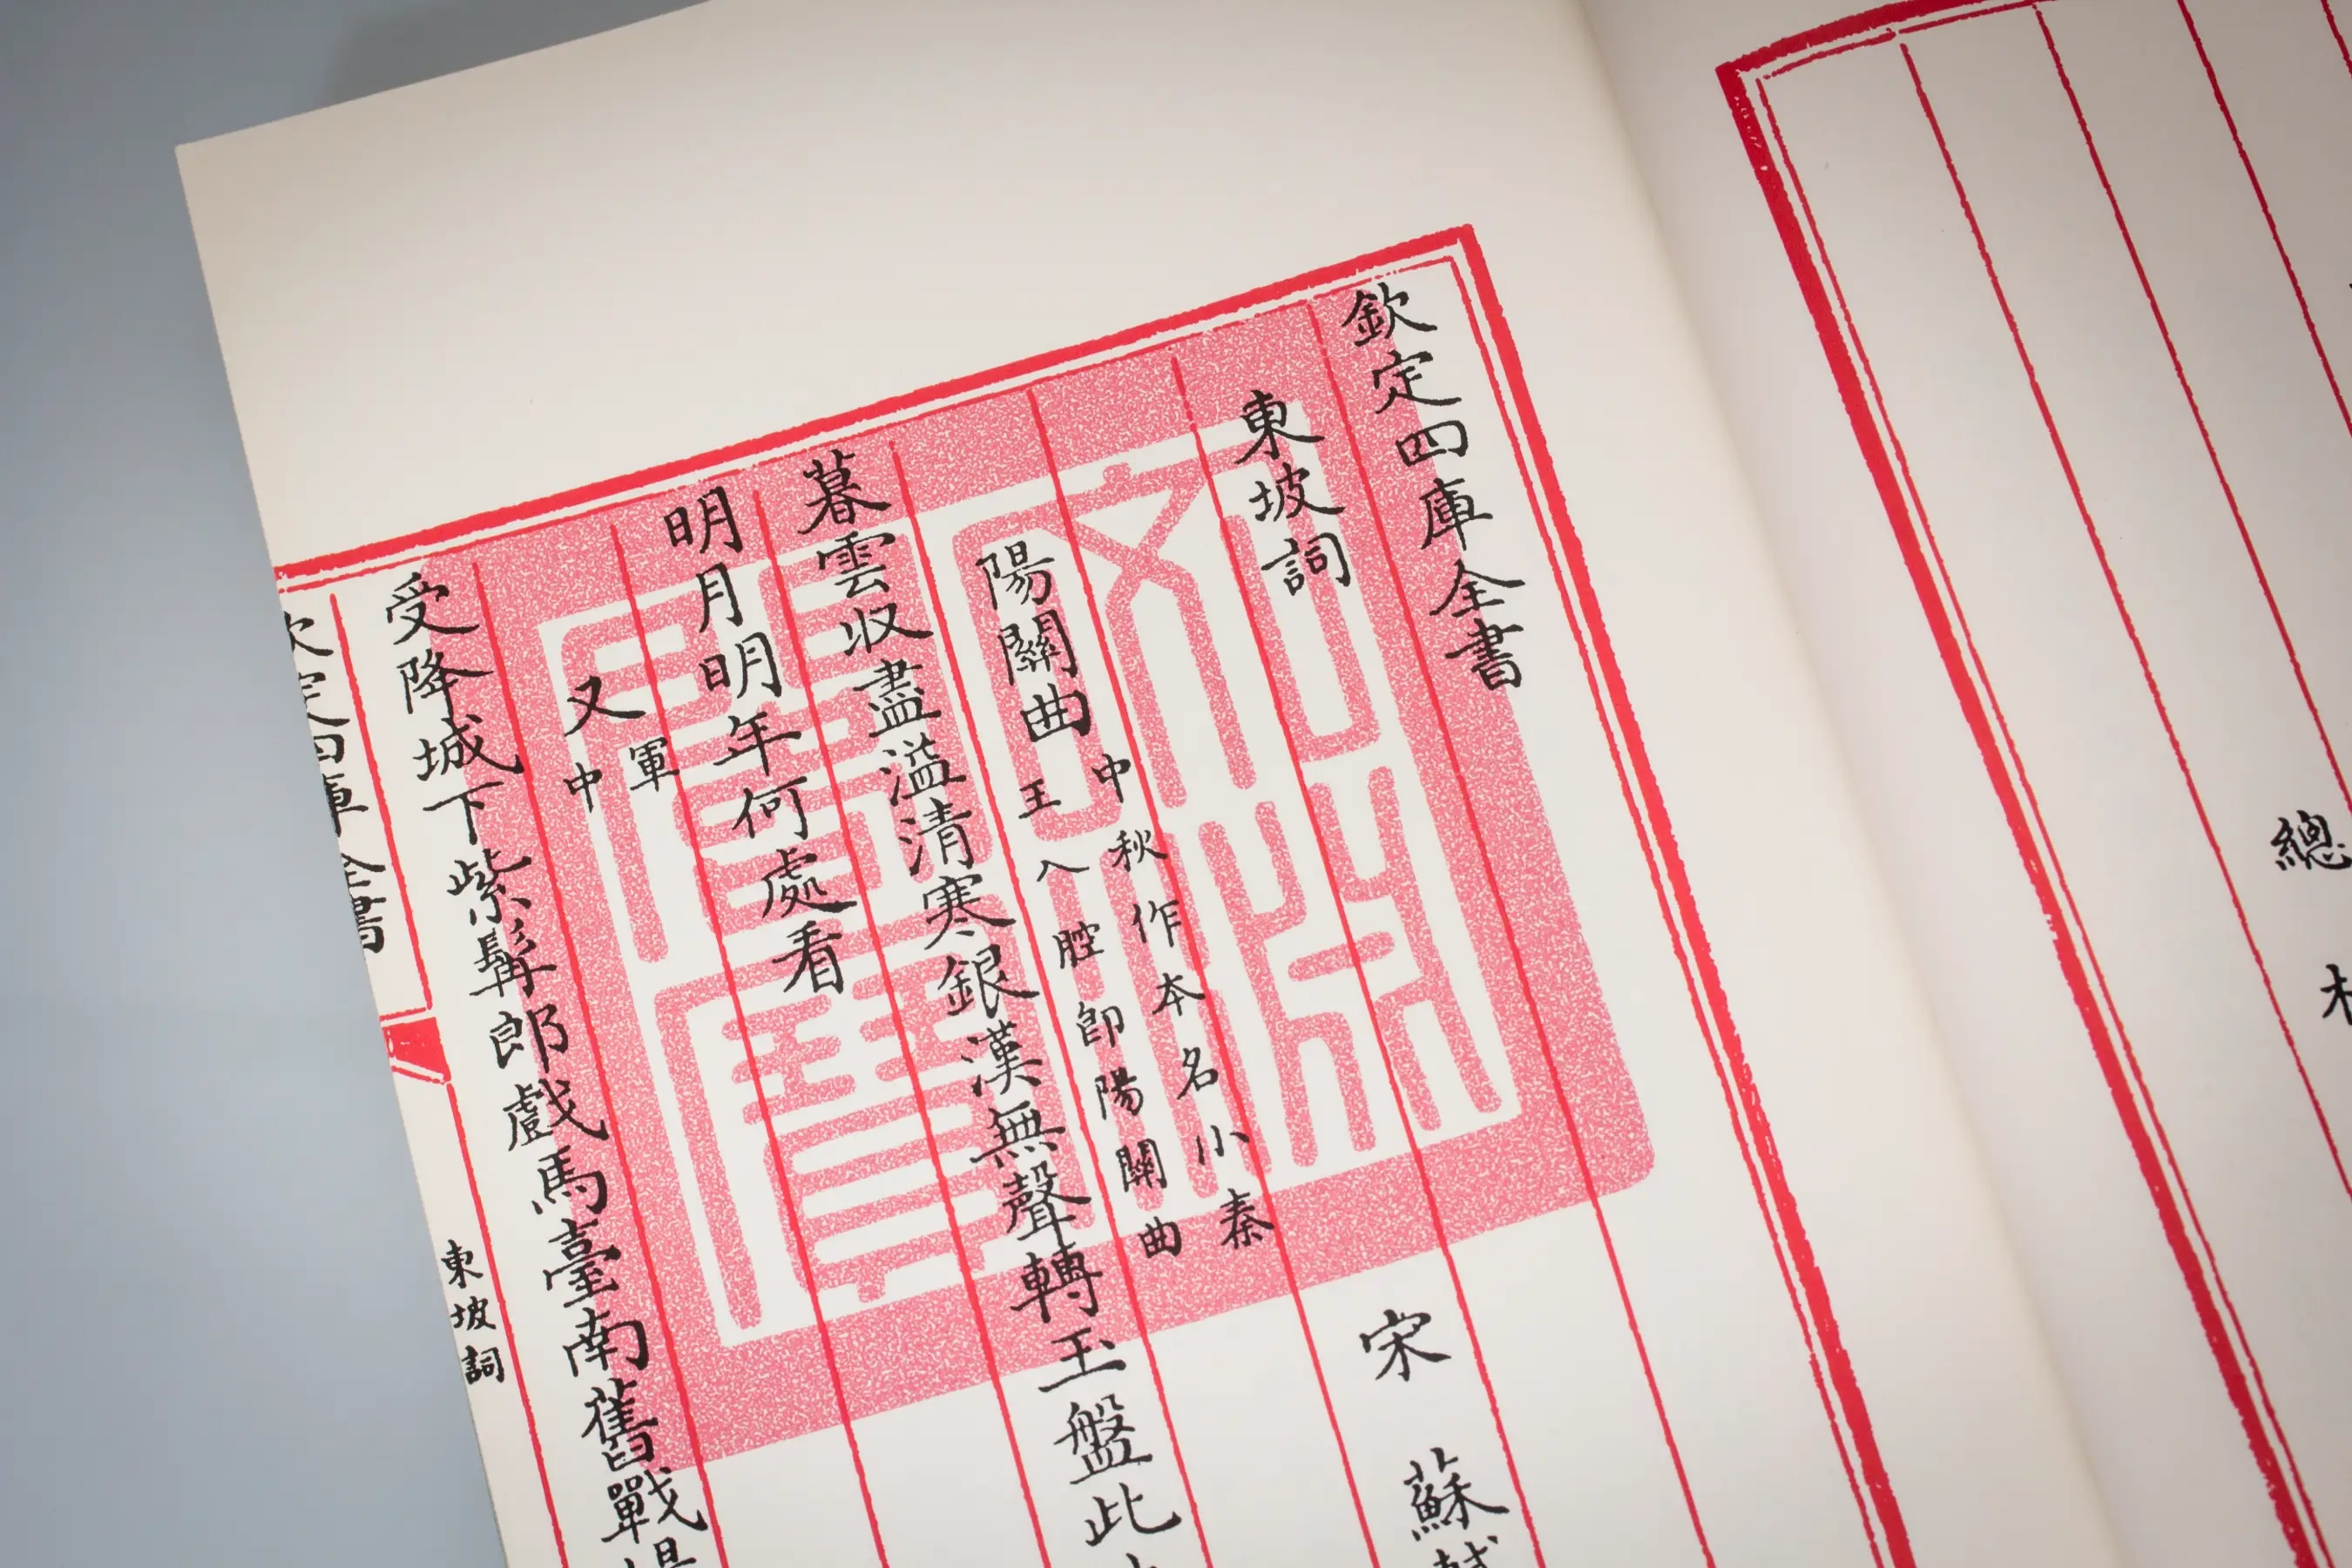 總
欽定四庫全書
東坡詞
宋 蘇
陽關曲 中秋作本名小秦
王入腔即陽關曲
暮雲収盡溢清寒銀漢無聲轉玉盤此
明月明年何處看
又 軍
中
受降城下紫髯郎戲馬臺南舊戰場
欽定四庫全書
東坡詞
文淵閣寶